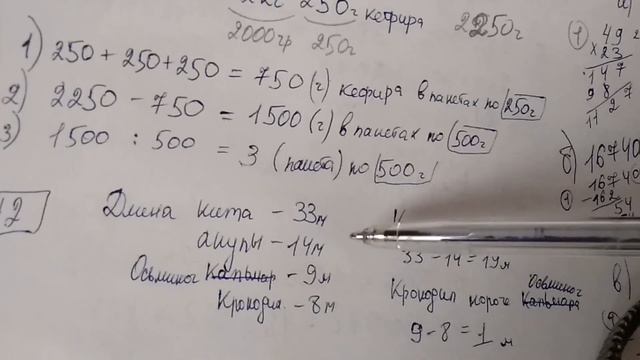 250г кефира 2250г
2000гр 250г
1) 250 + 250 + 250 = 750 (г) кефира в пакетах по 250г
2) 2250 - 750 = 1500 (г) в пакетах по 500г
3) 1500 : 500 = 3 (пакета) по 500г
12
Длина кита - 33м
акулы - 14м
33 - 14 = 19м
Осьминог Кальмар - 9м
Крокодил - 8м
Крокодил короче Осьминог Кальмара
9 - 8 = 1м
49
× 23
147
98
1127
б) 16740
16740
- 162
54
в)